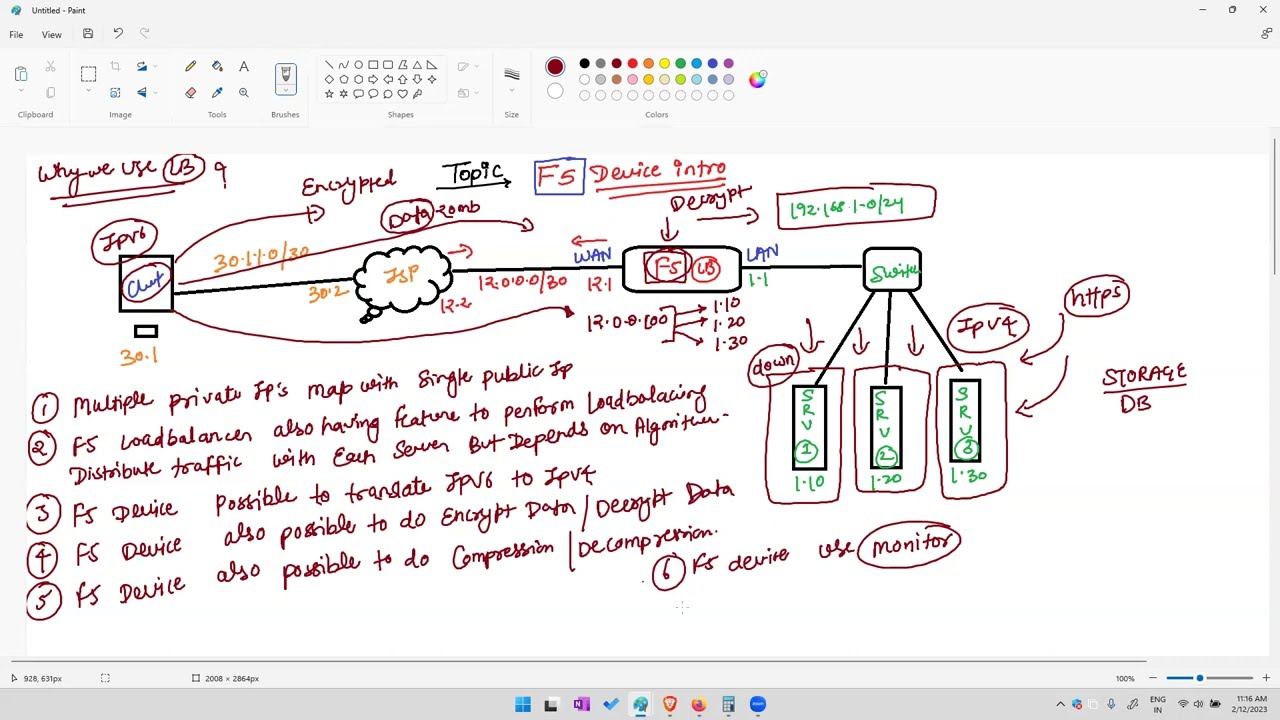 Untitled - Paint
File
View
Clipboard
Image
Tools
Brushes
Shapes
Size
Colors
Why we use LB ?
Topic
F5 Device intro
Encrypted
Data 20mb
Decrypt
192.168.1.0/24
IPV6
30.1.1.0/30
Client
30.2
ISP
12.2
WAN
12.0.0.0/30
12.1
F5 LB
LAN
1.1
Switch
30.1
12.0.0.100
1.10
1.20
1.30
https
IPV4
down
SRV 1
1.10
SRV 2
1.20
SRV 3
1.30
STORAGE
DB
1 Multiple private Ip's map with Single public Ip
2 F5 Loadbalancer also having feature to perform Loadbalacing
Distribute traffic with Each Server But Depends on
3 F5 Device possible to translate IPV6 to IPV4
4 F5 Device also possible to do Encrypt Data / Decrypt Data
5 F5 Device also possible to do Compression / Decompression.
6 F5 device use monitor
928, 631px
2008 × 2864px
100%
ENG
IN
11:16 AM
2/12/2023